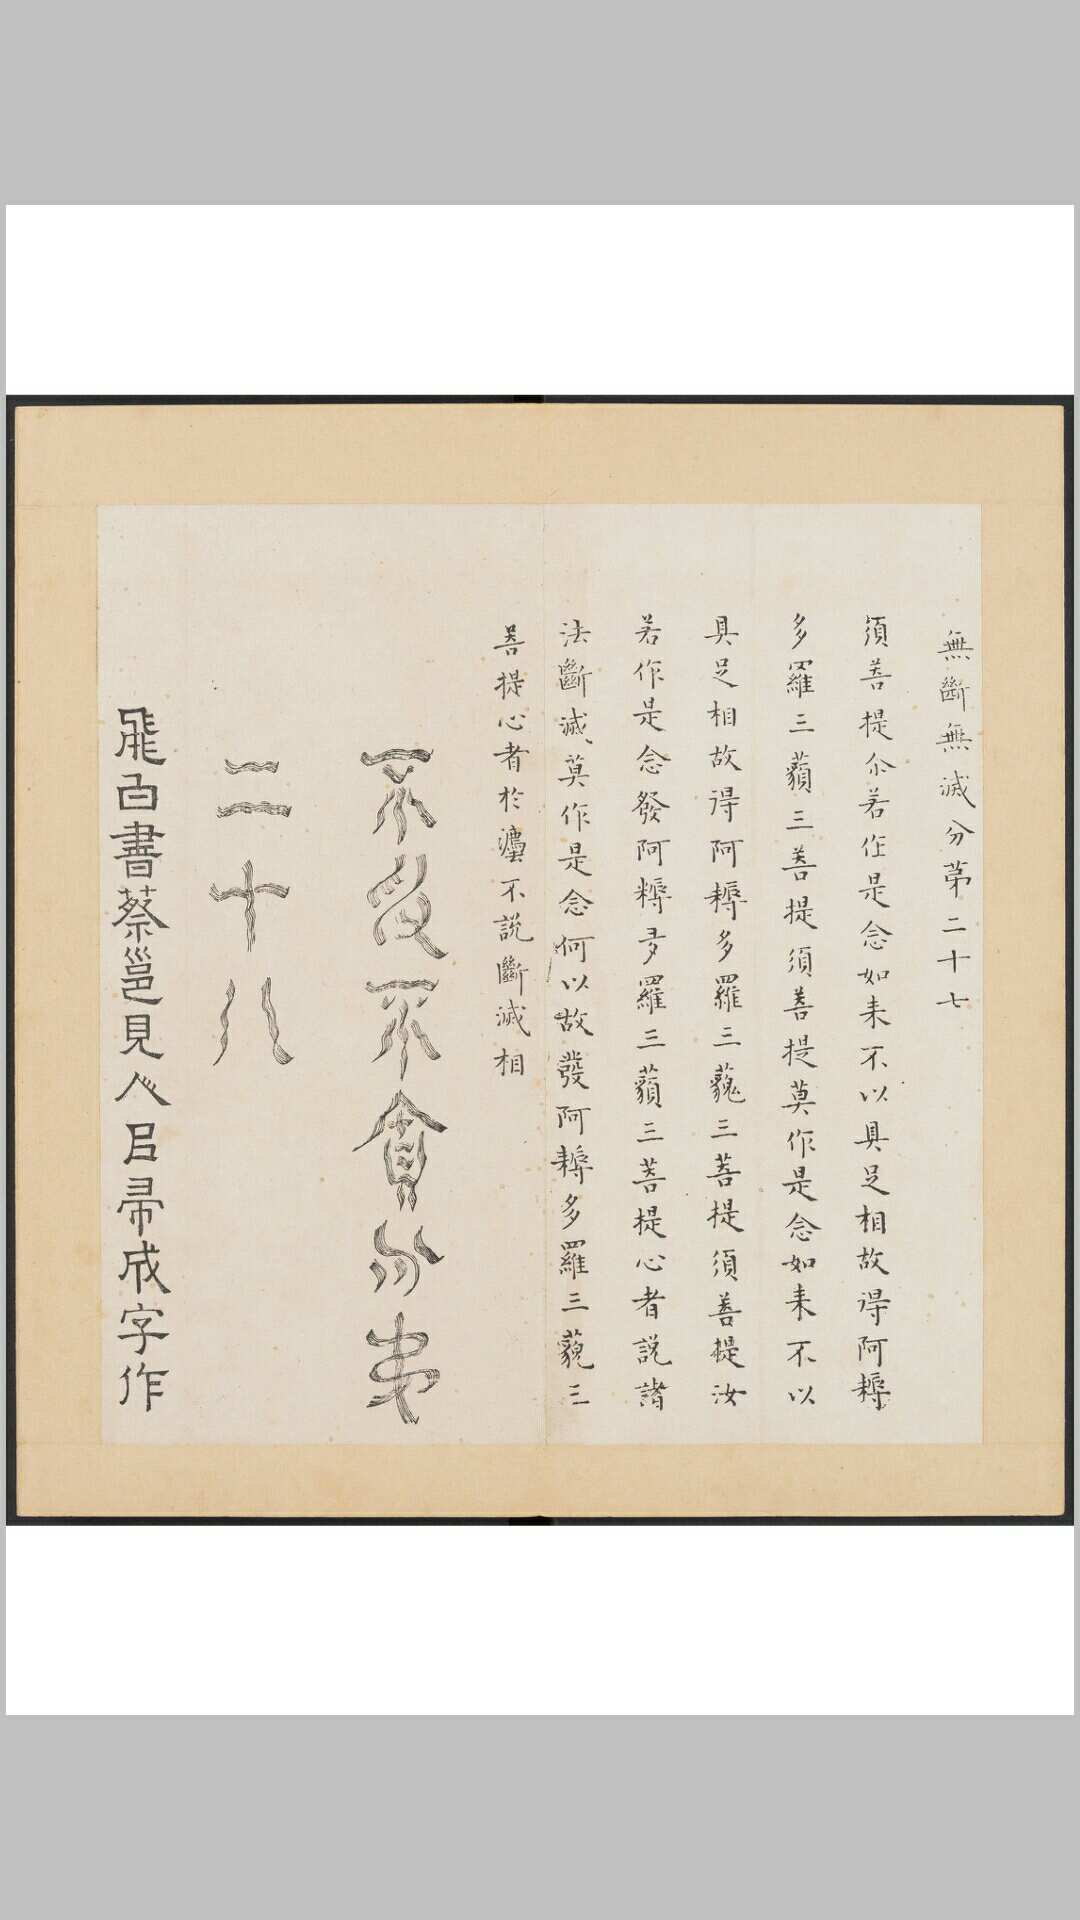 無斷無滅分第二十七
須菩提尒若作是念如来不以具足相故得阿耨
多羅三藐三菩提須菩提莫作是念如来不以
具足相故得阿耨多羅三藐三菩提須菩提汝
若作是念發阿耨多羅三藐三菩提心者説諸
法斷滅莫作是念何以故發阿耨多羅三藐三
菩提心者於灋不説斷滅相
不受不貪分弟
二十八
飛白書蔡邕見人㠯帚成字作